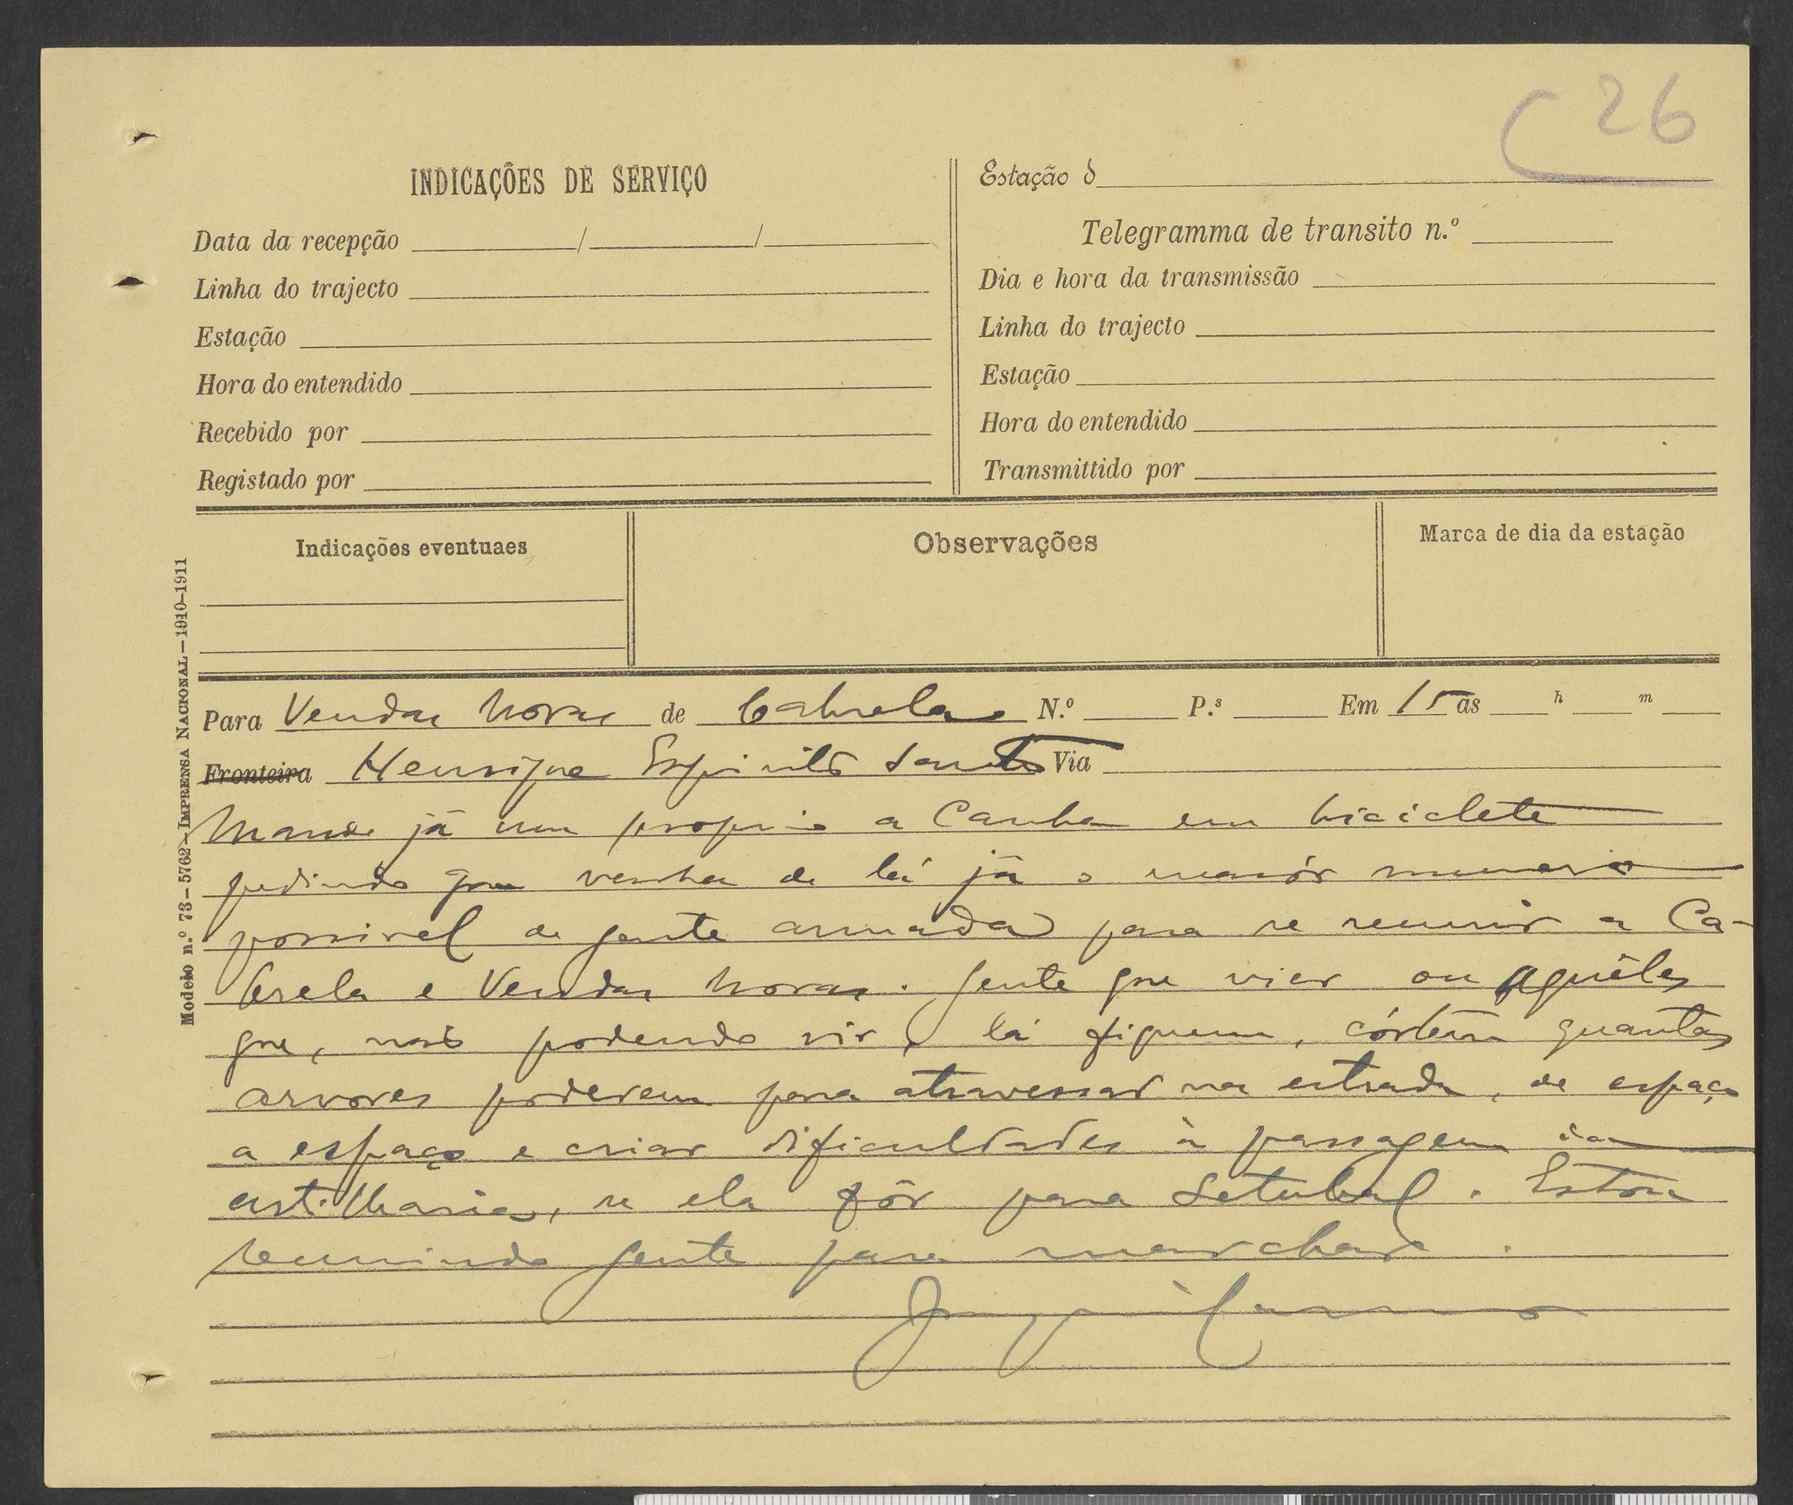 C 26
INDICAÇÕES DE SERVIÇO
Data da recepção / /
Linha do trajecto
Estação
Hora do entendido
Recebido por
Registado por
Estação d
Telegramma de transito n.º
Dia e hora da transmissão
Linha do trajecto
Estação
Hora do entendido
Transmittido por
Indicações eventuaes
Observações
Marca de dia da estação
Modelo n.º 73—5762—IMPRENSA NACIONAL—1910-1911
Para Vendas Novas de Cabrela N.º P.s Em 15 ás h m
Fronteira Henrique Espirito Santo Via
Mande já um proprio a Canha em biciclete
pedindo que venha de lá já o maiór numero
possivel de gente armada para se reunir a Ca-
brela e Vendas Novas. Gente que vier ou aquêles
que, não podendo vir, lá fiquem, córtem quantas
arvores poderem para atravessar na estrada, de espaço
a espaço e criar dificuldades à passagem da
artilharia, se ela fôr para Setubal. Estou
reunindo gente para marchar.